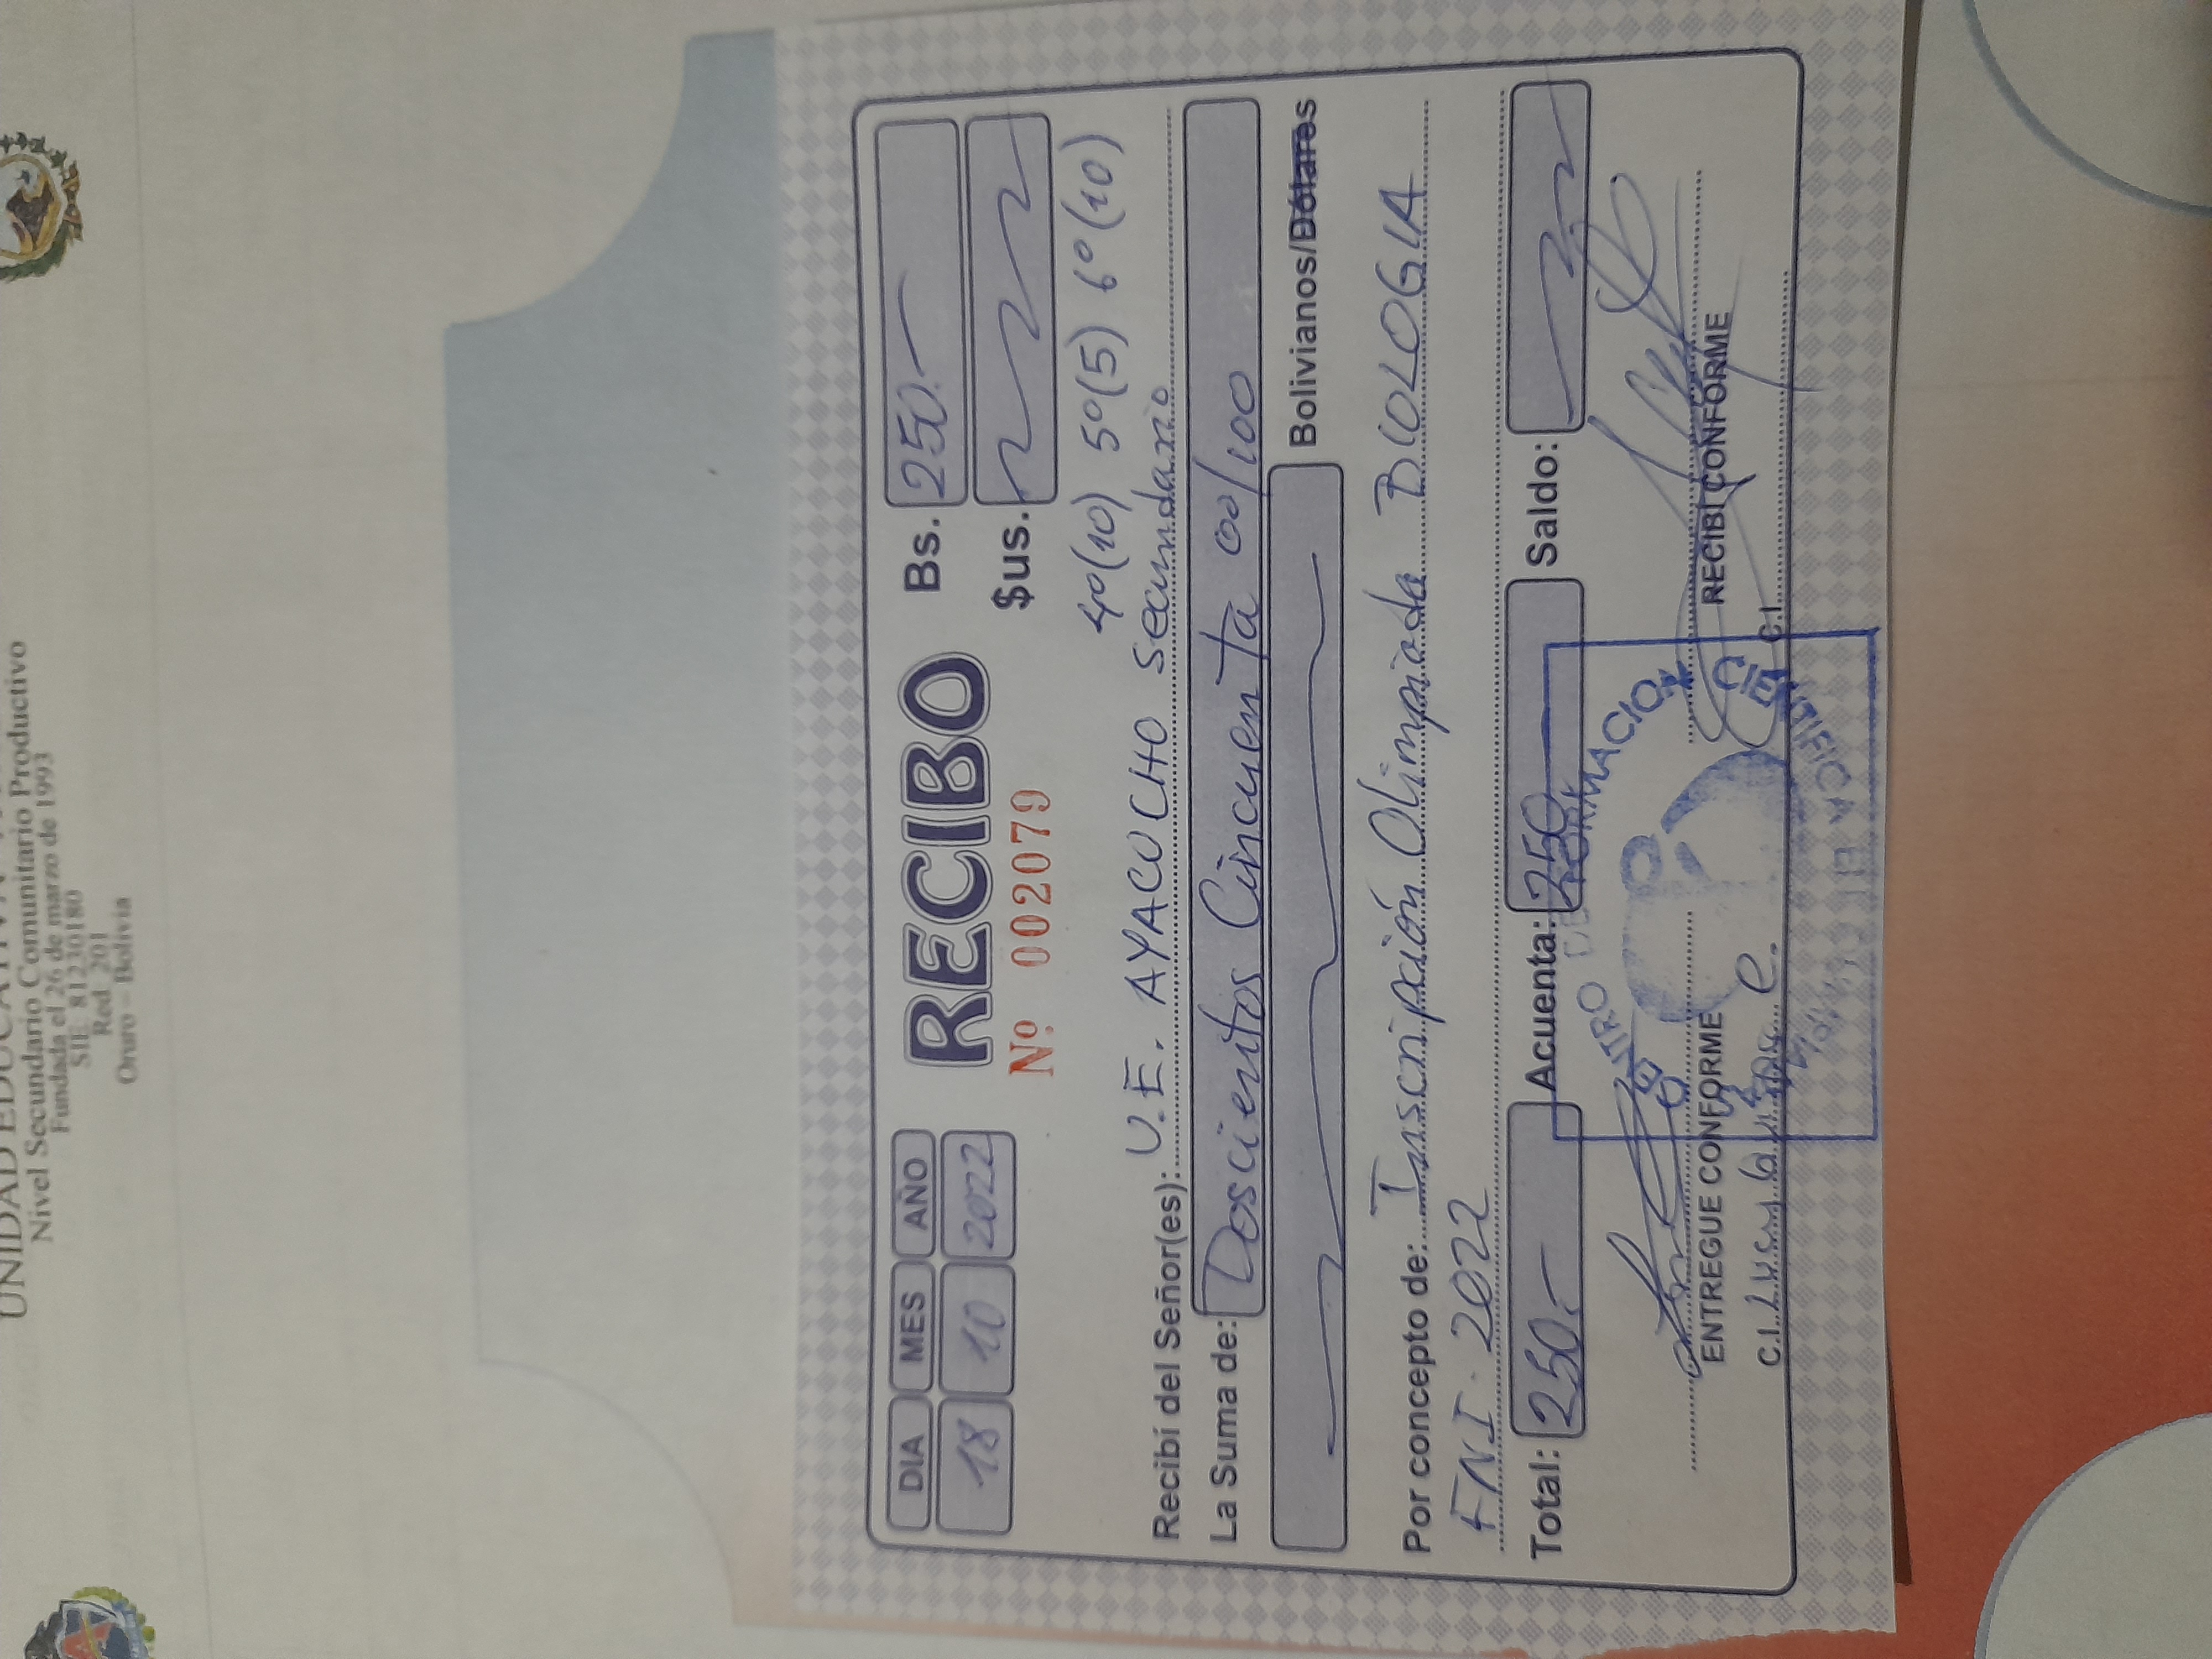 UNIDAD EDUCATIVA
Nivel Secundario Comunitario Productivo
Fundada el 26 de marzo de 1993
SIE 81230180
Red 201
Oruro – Bolivia
DIA MES AÑO
18 10 2022
RECIBO
Nº 002079
Bs. 250.-
$us.
4º(10) 5º(5) 6º(10)
Recibí del Señor(es): U.E. AYACUCHO Secundario
La Suma de: Doscientos Cincuenta 00/100
Bolivianos/Dólares
Por concepto de: Inscripción Olimpiada BIOLOGIA
FNI. 2022
Total: 250.- Acuenta: 250 Saldo:
ENTREGUE CONFORME RECIBÍ CONFORME
C.I. Lucy e. C.I.
CENTRO DE FORMACION CIENTIFICA EN